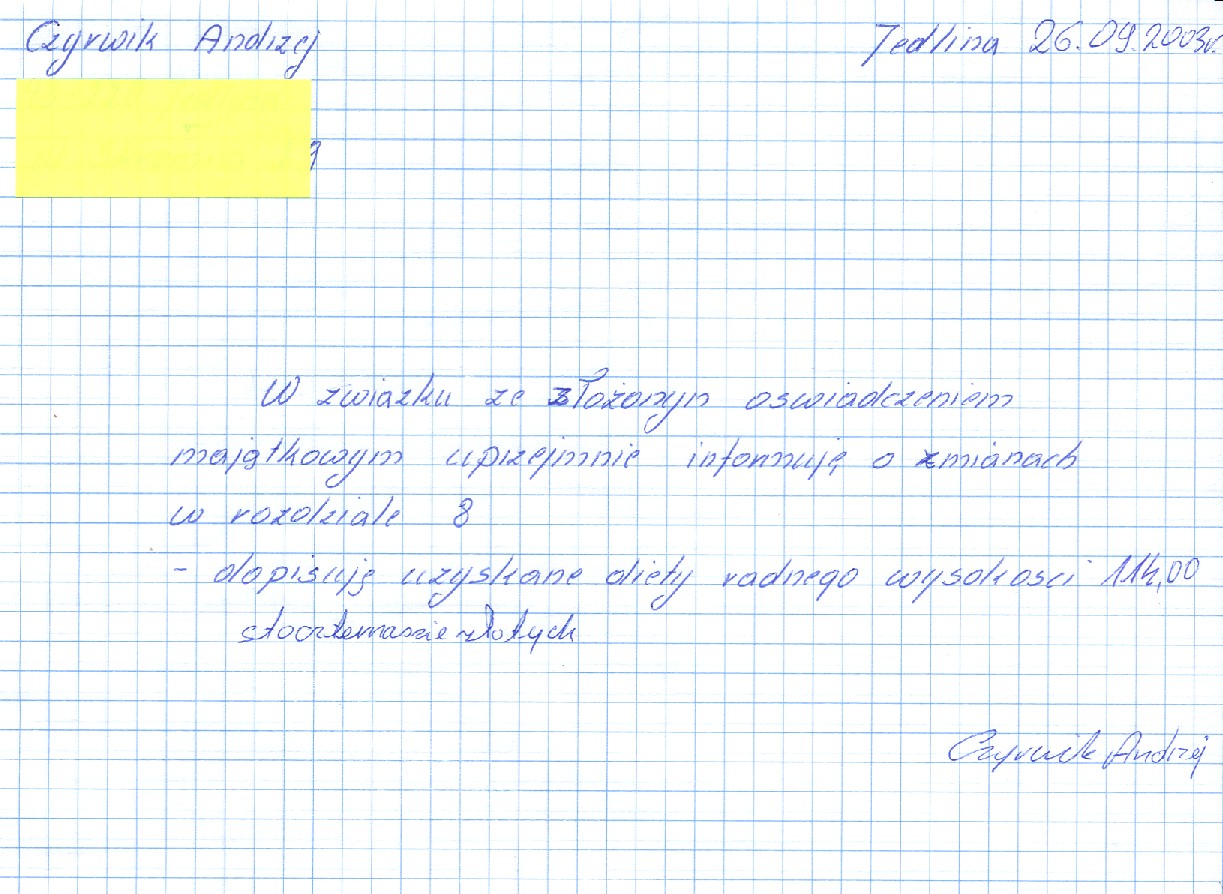 Czyrwik Andrzej
Jedlina 26.09.2003r.
W związku ze złożonym oświadczeniem
majątkowym uprzejmnie informuję o zmianach
w rozdziale 8
- dopisuję uzyskane diety radnego wysokości 114,00
stoczternaście złotych
Czyrwik Andrzej